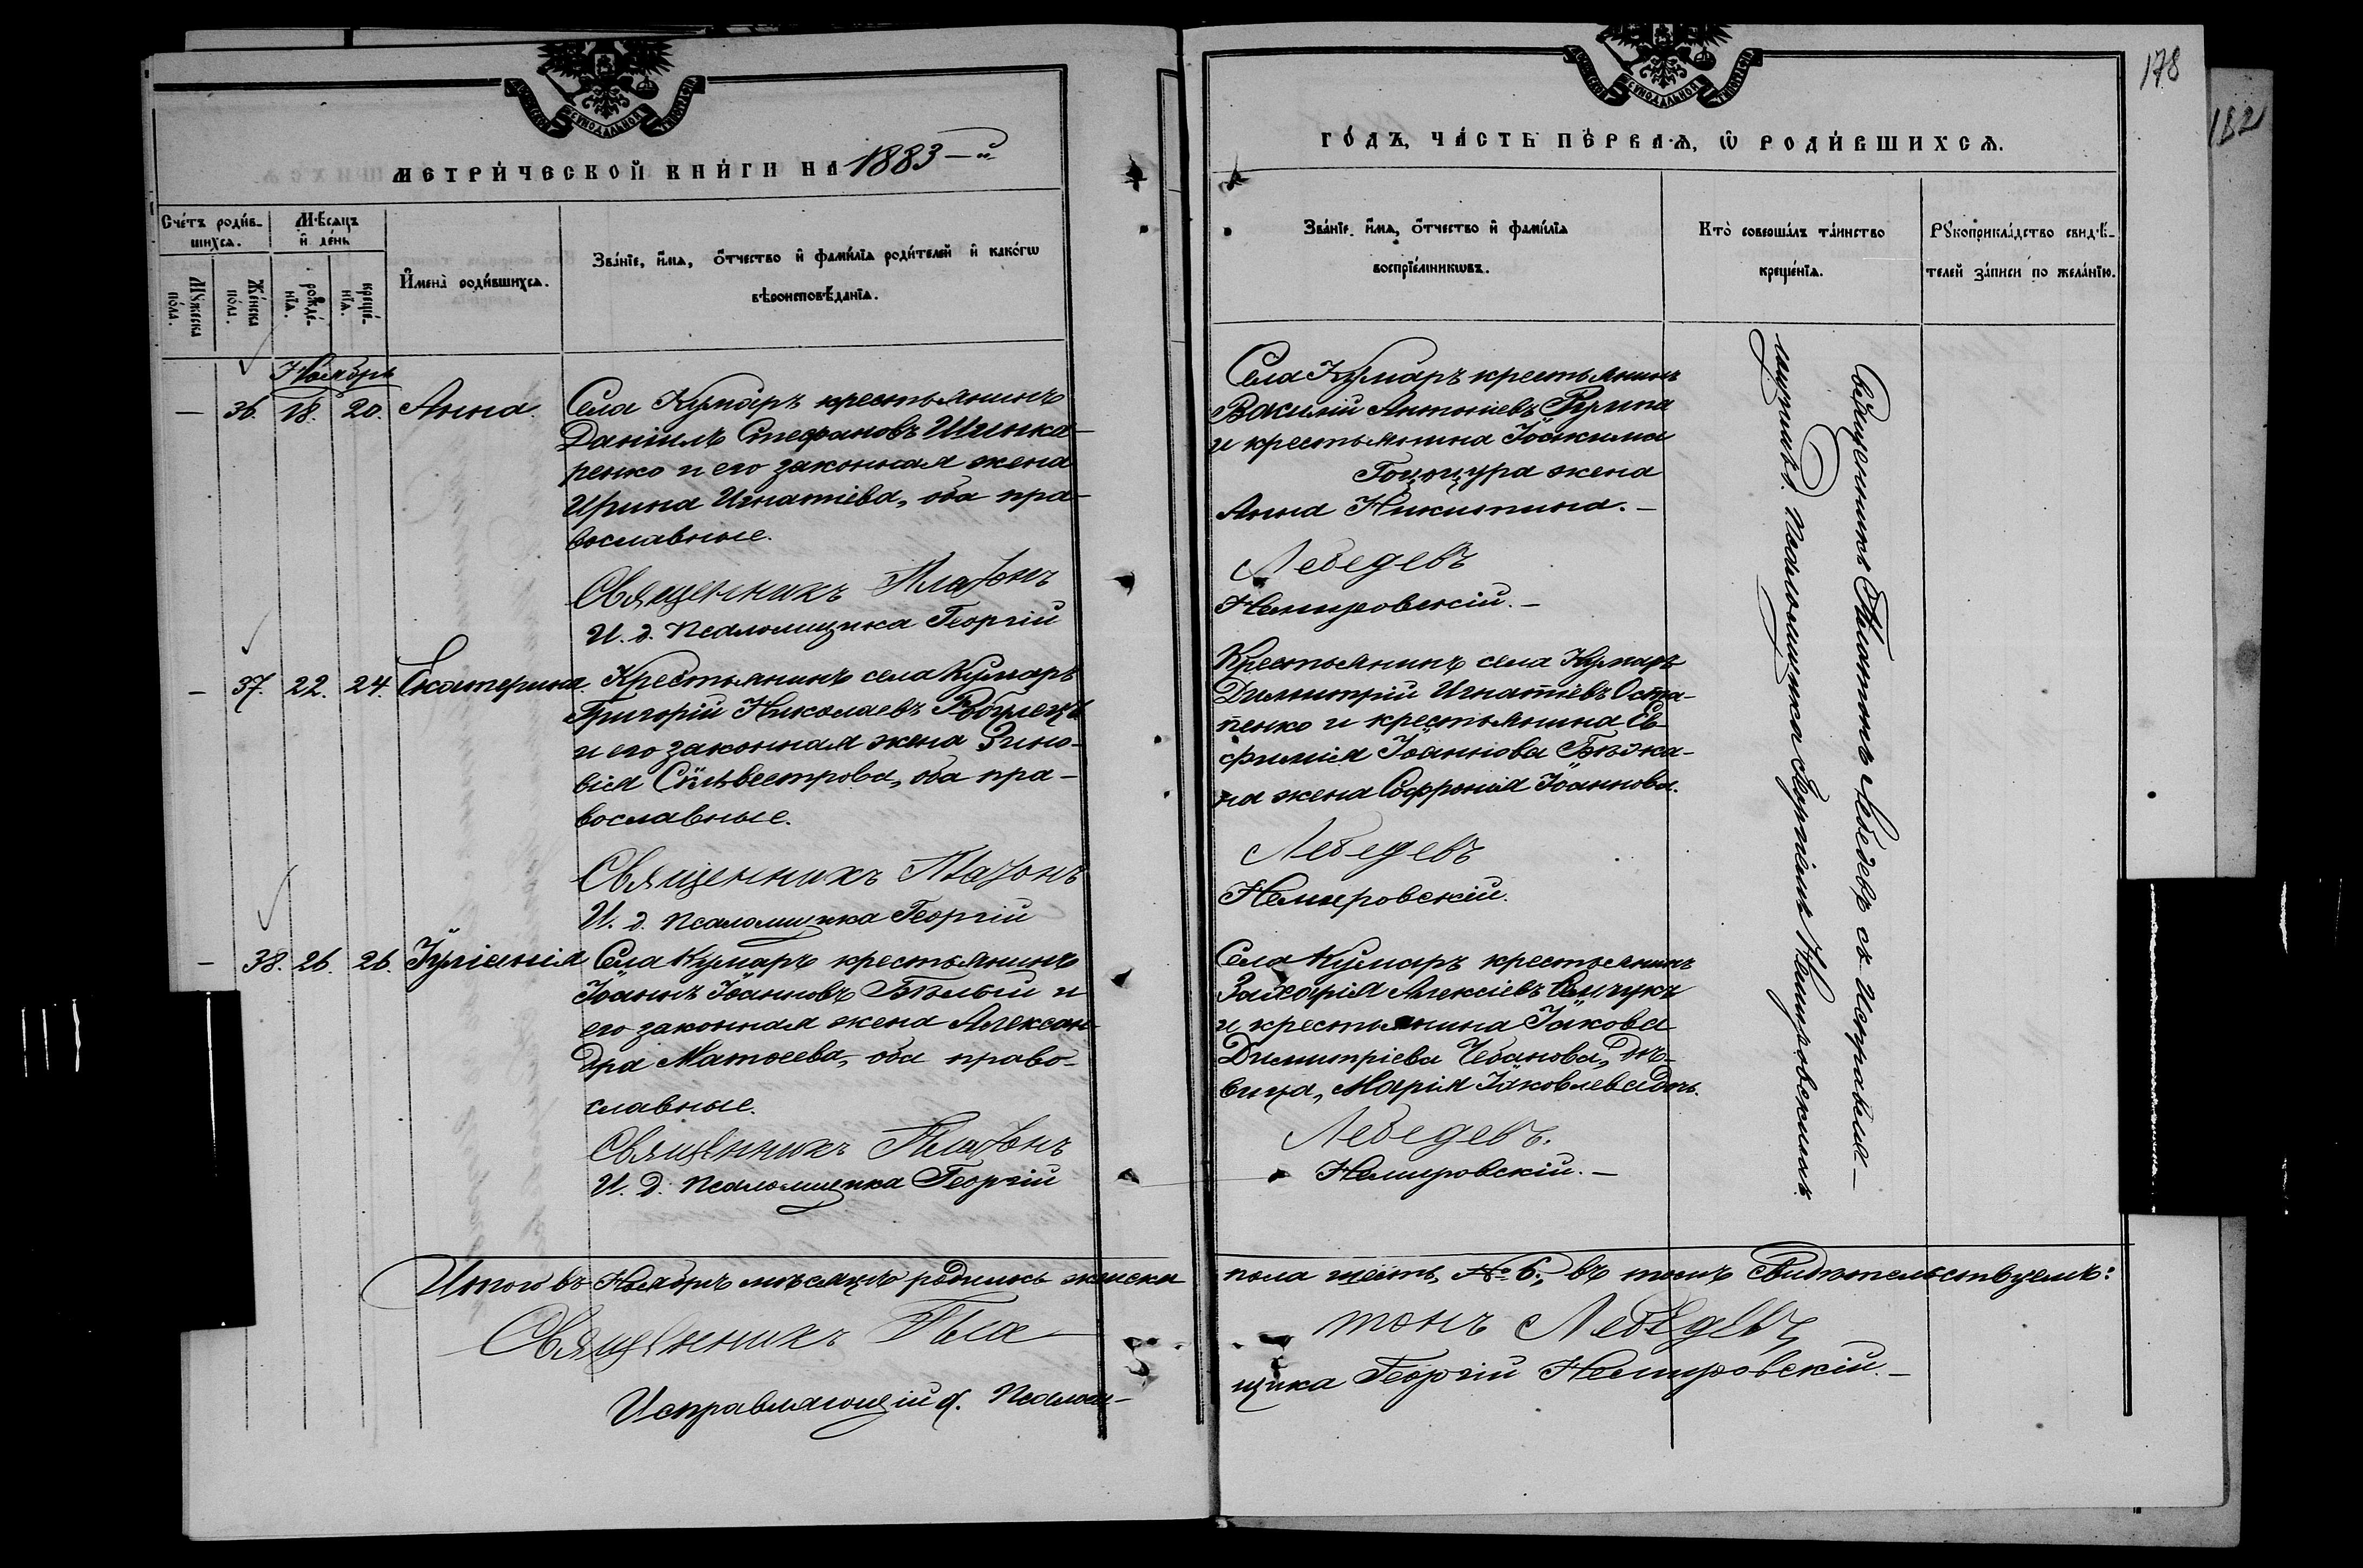 178
182
МЕТРИЧЕСКОЙ КНИГИ НА 1883-й
ГОДЪ, ЧАСТЬ ПЕРВАЯ, Ѡ РОДИВШИХСЯ.
Счетъ родив-
шихся.
Мужеска пола.
Женска пола.
Мѣсяцъ
и день
рожде-
нія.
креще-
нія.
Имена родившихся.
Званіе, имя, отчество и фамилія родителей и какогѡ
вѣроисповѣданія.
Званіе, имя, отчество и фамилія
воспріемниковъ.
Кто совершалъ таинство
крещенія.
Рукоприкладство свидѣ-
телей записи по желанію.
Ноябрь
— 36. 18. 20. Анна.
Села Кумаръ крестьянинъ
Даніилъ Стефановъ Шинка-
ренко и его законная жена
Ирина Игнатіева, оба пра-
вославные.
Священникъ Платонъ
И. д. Псаломщика Георгій
Села Кумаръ крестьянинъ
Василій Антоніевъ
и крестьянина Іоакима
жена
Анна Никитина. —
Лебедевъ
Немировскій. —
— 37. 22. 24. Екатерина.
Крестьянинъ села Кумаръ
Григорій Николаевъ
и его законная жена Зино-
вія Сильвестрова, оба пра-
вославные.
Священникъ Платонъ
И. д. Псаломщика Георгій
Крестьянинъ села Кумаръ
Димитрій Игнатіевъ Оста-
пенко и крестьянина Ев-
фимія Іоаннова Бѣжа-
на жена Софронія Іоаннова.
Лебедевъ
Немировскій.
— 38. 26. 26. Іуліанія
Села Кумаръ крестьянинъ
Іоаннъ Іоанновъ Бѣлый и
его законная жена Алексан-
дра Матѳеева, оба право-
славные.
Священникъ Платонъ
И. д. Псаломщика Георгій
Села Кумаръ крестьянинъ
Захарія Алексіевъ
и крестьянина Іакова
Димитріева Чебанова, дѣ-
вица, Марія Іаковлева дочь.
Лебедевъ.
Немировскій. —
Священникъ Платонъ Лебедевъ съ исправля-
ющимъ д. Псаломщика Георгіемъ Немировскимъ
Итого въ Ноябрѣ мѣсяцѣ родилось женска пола шесть, № 6; въ томъ свидѣтельствуемъ:
Священникъ Платонъ Лебедевъ
Исправляющій д. Псаломщика Георгій Немировскій. —